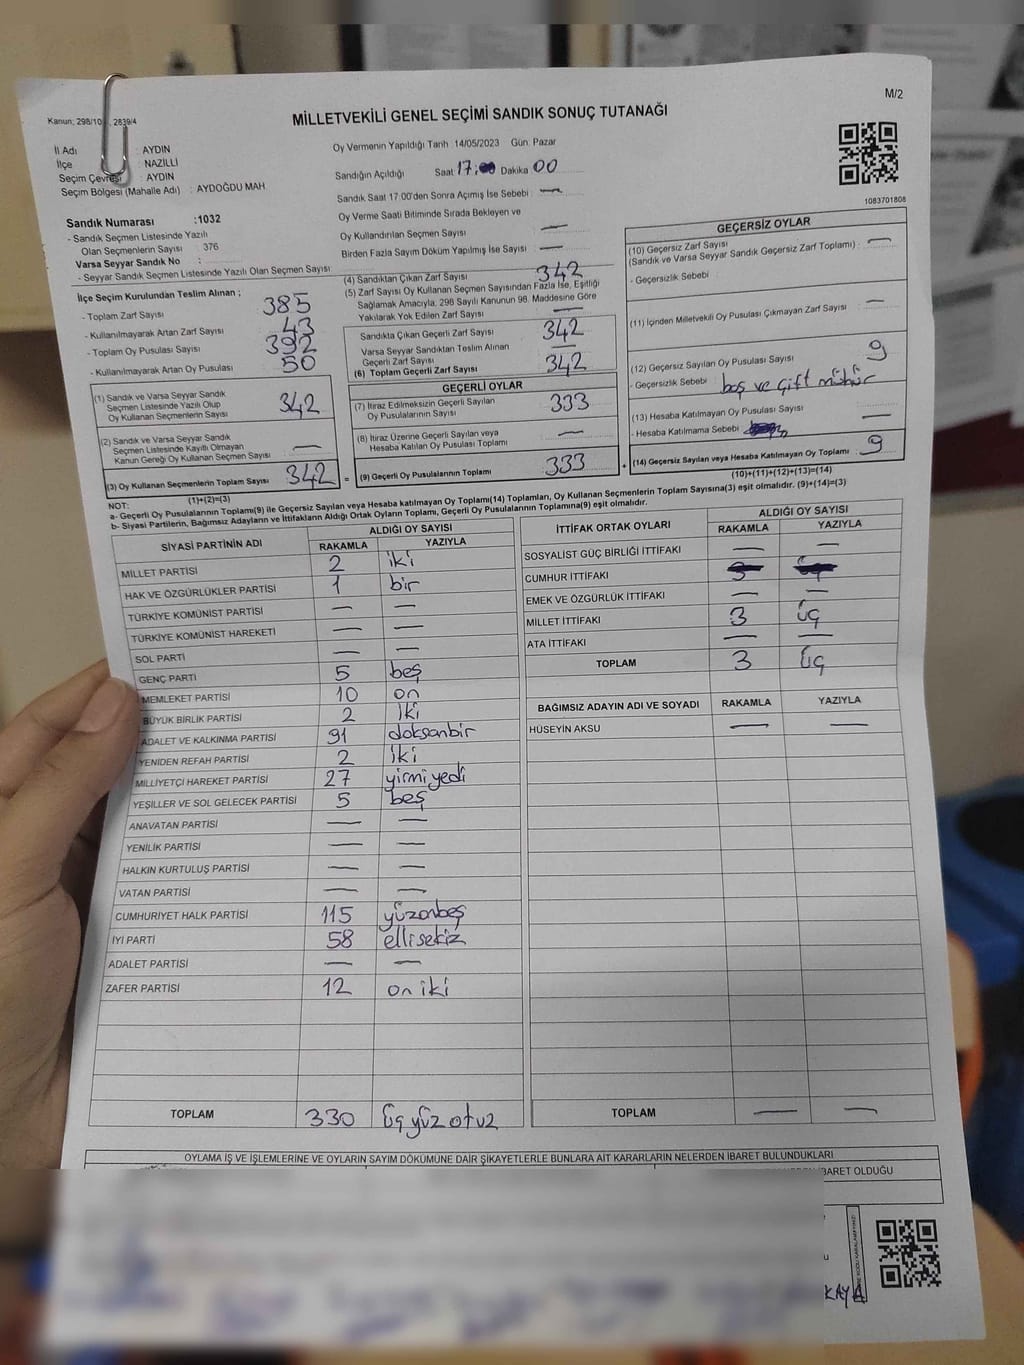 M/2
Kanun; 298/10 , 2839/4
MİLLETVEKİLİ GENEL SEÇİMİ SANDIK SONUÇ TUTANAĞI
İl Adı : AYDIN
İlçe : NAZİLLİ
Seçim Çevresi : AYDIN
Seçim Bölgesi (Mahalle Adı) : AYDOĞDU MAH
Sandık Numarası :1032
- Sandık Seçmen Listesinde Yazılı
Olan Seçmenlerin Sayısı : 376
Varsa Seyyar Sandık No :
- Seyyar Sandık Seçmen Listesinde Yazılı Olan Seçmen Sayısı :
Oy Vermenin Yapıldığı Tarih :14/05/2023 Gün: Pazar
Sandığın Açıldığı Saat 17:00 Dakika 00
Sandık Saat 17:00'den Sonra Açımış İse Sebebi : —
Oy Verme Saati Bitiminde Sırada Bekleyen ve
Oy Kullandırılan Seçmen Sayısı : —
Birden Fazla Sayım Döküm Yapılmış İse Sayısı : —
1083701808
İlçe Seçim Kurulundan Teslim Alınan ;
- Toplam Zarf Sayısı : 385
- Kullanılmayarak Artan Zarf Sayısı : 43
- Toplam Oy Pusulası Sayısı : 392
- Kullanılmayarak Artan Oy Pusulası : 50
(1) Sandık ve Varsa Seyyar Sandık
Seçmen Listesinde Yazılı Olup
Oy Kullanan Seçmenlerin Sayısı : 342
(2) Sandık ve Varsa Seyyar Sandık
Seçmen Listesinde Kayıtlı Olmayan
Kanun Gereği Oy Kullanan Seçmen Sayısı : —
(3) Oy Kullanan Seçmenlerin Toplam Sayısı : 342 =
(1)+(2)=(3)
(4) Sandıktan Çıkan Zarf Sayısı : 342
(5) Zarf Sayısı Oy Kullanan Seçmen Sayısından Fazla İse, Eşitliği
Sağlamak Amacıyla, 298 Sayılı Kanunun 98. Maddesine Göre
Yakılarak Yok Edilen Zarf Sayısı : —
Sandıkta Çıkan Geçerli Zarf Sayısı : 342
Varsa Seyyar Sandıktan Teslim Alınan
Geçerli Zarf Sayısı : —
(6) Toplam Geçerli Zarf Sayısı : 342
GEÇERLİ OYLAR
(7) İtiraz Edilmeksizin Geçerli Sayılan
Oy Pusulalarının Sayısı : 333
(8) İtiraz Üzerine Geçerli Sayılan veya
Hesaba Katılan Oy Pusulası Toplamı : —
(9) Geçerli Oy Pusulalarının Toplamı : 333 +
GEÇERSİZ OYLAR
(10) Geçersiz Zarf Sayısı
(Sandık ve Varsa Seyyar Sandık Geçersiz Zarf Toplamı) : —
- Geçersizlik Sebebi :
(11) İçinden Milletvekili Oy Pusulası Çıkmayan Zarf Sayısı : —
(12) Geçersiz Sayılan Oy Pusulası Sayısı : 9
- Geçersizlik Sebebi : boş ve çift mühür
(13) Hesaba Katılmayan Oy Pusulası Sayısı : —
- Hesaba Katılmama Sebebi :
(14) Geçersiz Sayılan veya Hesaba Katılmayan Oy Toplamı : 9
(10)+(11)+(12)+(13)=(14)
NOT:
a- Geçerli Oy Pusulalarının Toplamı(9) ile Geçersiz Sayılan veya Hesaba katılmayan Oy Toplamı(14) Toplamları, Oy Kullanan Seçmenlerin Toplam Sayısına(3) eşit olmalıdır. (9)+(14)=(3)
b- Siyasi Partilerin, Bağımsız Adayların ve İttifakların Aldığı Ortak Oyların Toplamı, Geçerli Oy Pusulalarının Toplamına(9) eşit olmalıdır.
SİYASİ PARTİNİN ADI ALDIĞI OY SAYISI
RAKAMLA YAZIYLA
MİLLET PARTİSİ 2 iki
HAK VE ÖZGÜRLÜKLER PARTİSİ 1 bir
TÜRKİYE KOMÜNİST PARTİSİ — —
TÜRKİYE KOMÜNİST HAREKETİ — —
SOL PARTİ — —
GENÇ PARTİ 5 beş
MEMLEKET PARTİSİ 10 on
BÜYÜK BİRLİK PARTİSİ 2 iki
ADALET VE KALKINMA PARTİSİ 91 doksanbir
YENİDEN REFAH PARTİSİ 2 iki
MİLLİYETÇİ HAREKET PARTİSİ 27 yirmiyedi
YEŞİLLER VE SOL GELECEK PARTİSİ 5 beş
ANAVATAN PARTİSİ — —
YENİLİK PARTİSİ — —
HALKIN KURTULUŞ PARTİSİ — —
VATAN PARTİSİ — —
CUMHURİYET HALK PARTİSİ 115 yüzonbeş
İYİ PARTİ 58 ellisekiz
ADALET PARTİSİ — —
ZAFER PARTİSİ 12 on iki
TOPLAM 330 üç yüz otuz
İTTİFAK ORTAK OYLARI ALDIĞI OY SAYISI
RAKAMLA YAZIYLA
SOSYALİST GÜÇ BİRLİĞİ İTTİFAKI — —
CUMHUR İTTİFAKI 3 üç
EMEK VE ÖZGÜRLÜK İTTİFAKI — —
MİLLET İTTİFAKI 3 üç
ATA İTTİFAKI — —
TOPLAM 3 üç
BAĞIMSIZ ADAYIN ADI VE SOYADI RAKAMLA YAZIYLA
HÜSEYİN AKSU — —
TOPLAM — —
OYLAMA İŞ VE İŞLEMLERİNE VE OYLARIN SAYIM DÖKÜMÜNE DAİR ŞİKAYETLERLE BUNLARA AİT KARARLARIN NELERDEN İBARET BULUNDUKLARI
BARET OLDUĞU
KAYA